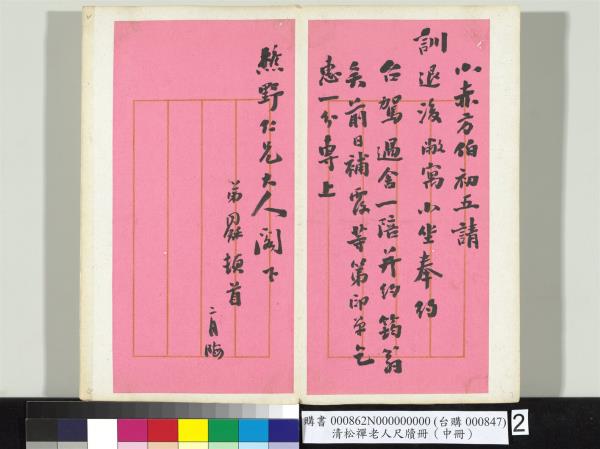 小赤方伯初五請
訓退後敝寓小坐奉約
台駕過舍一陪并約筠翁
矣前日補霞等第印單乞
惠一分專上
熊野仁兄大人閣下
弟 頓首
二月晦
購書 000862N000000000 (台購 000847)
清松禪老人尺牘冊(中冊)
2